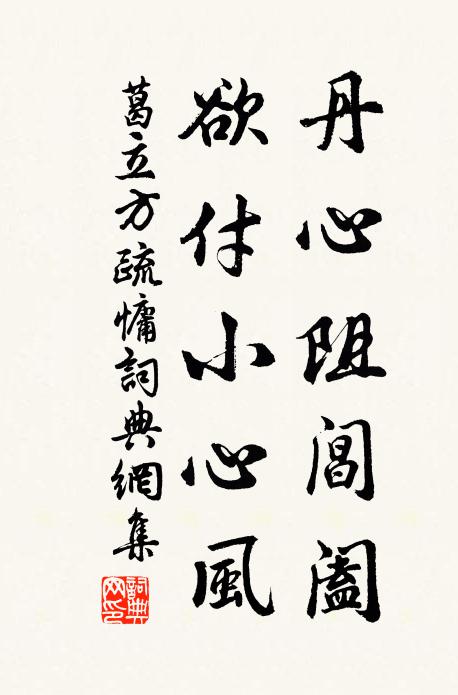 丹心阻閶闔
欲付小心風
葛立方疏慵詞典網集
詞典网印